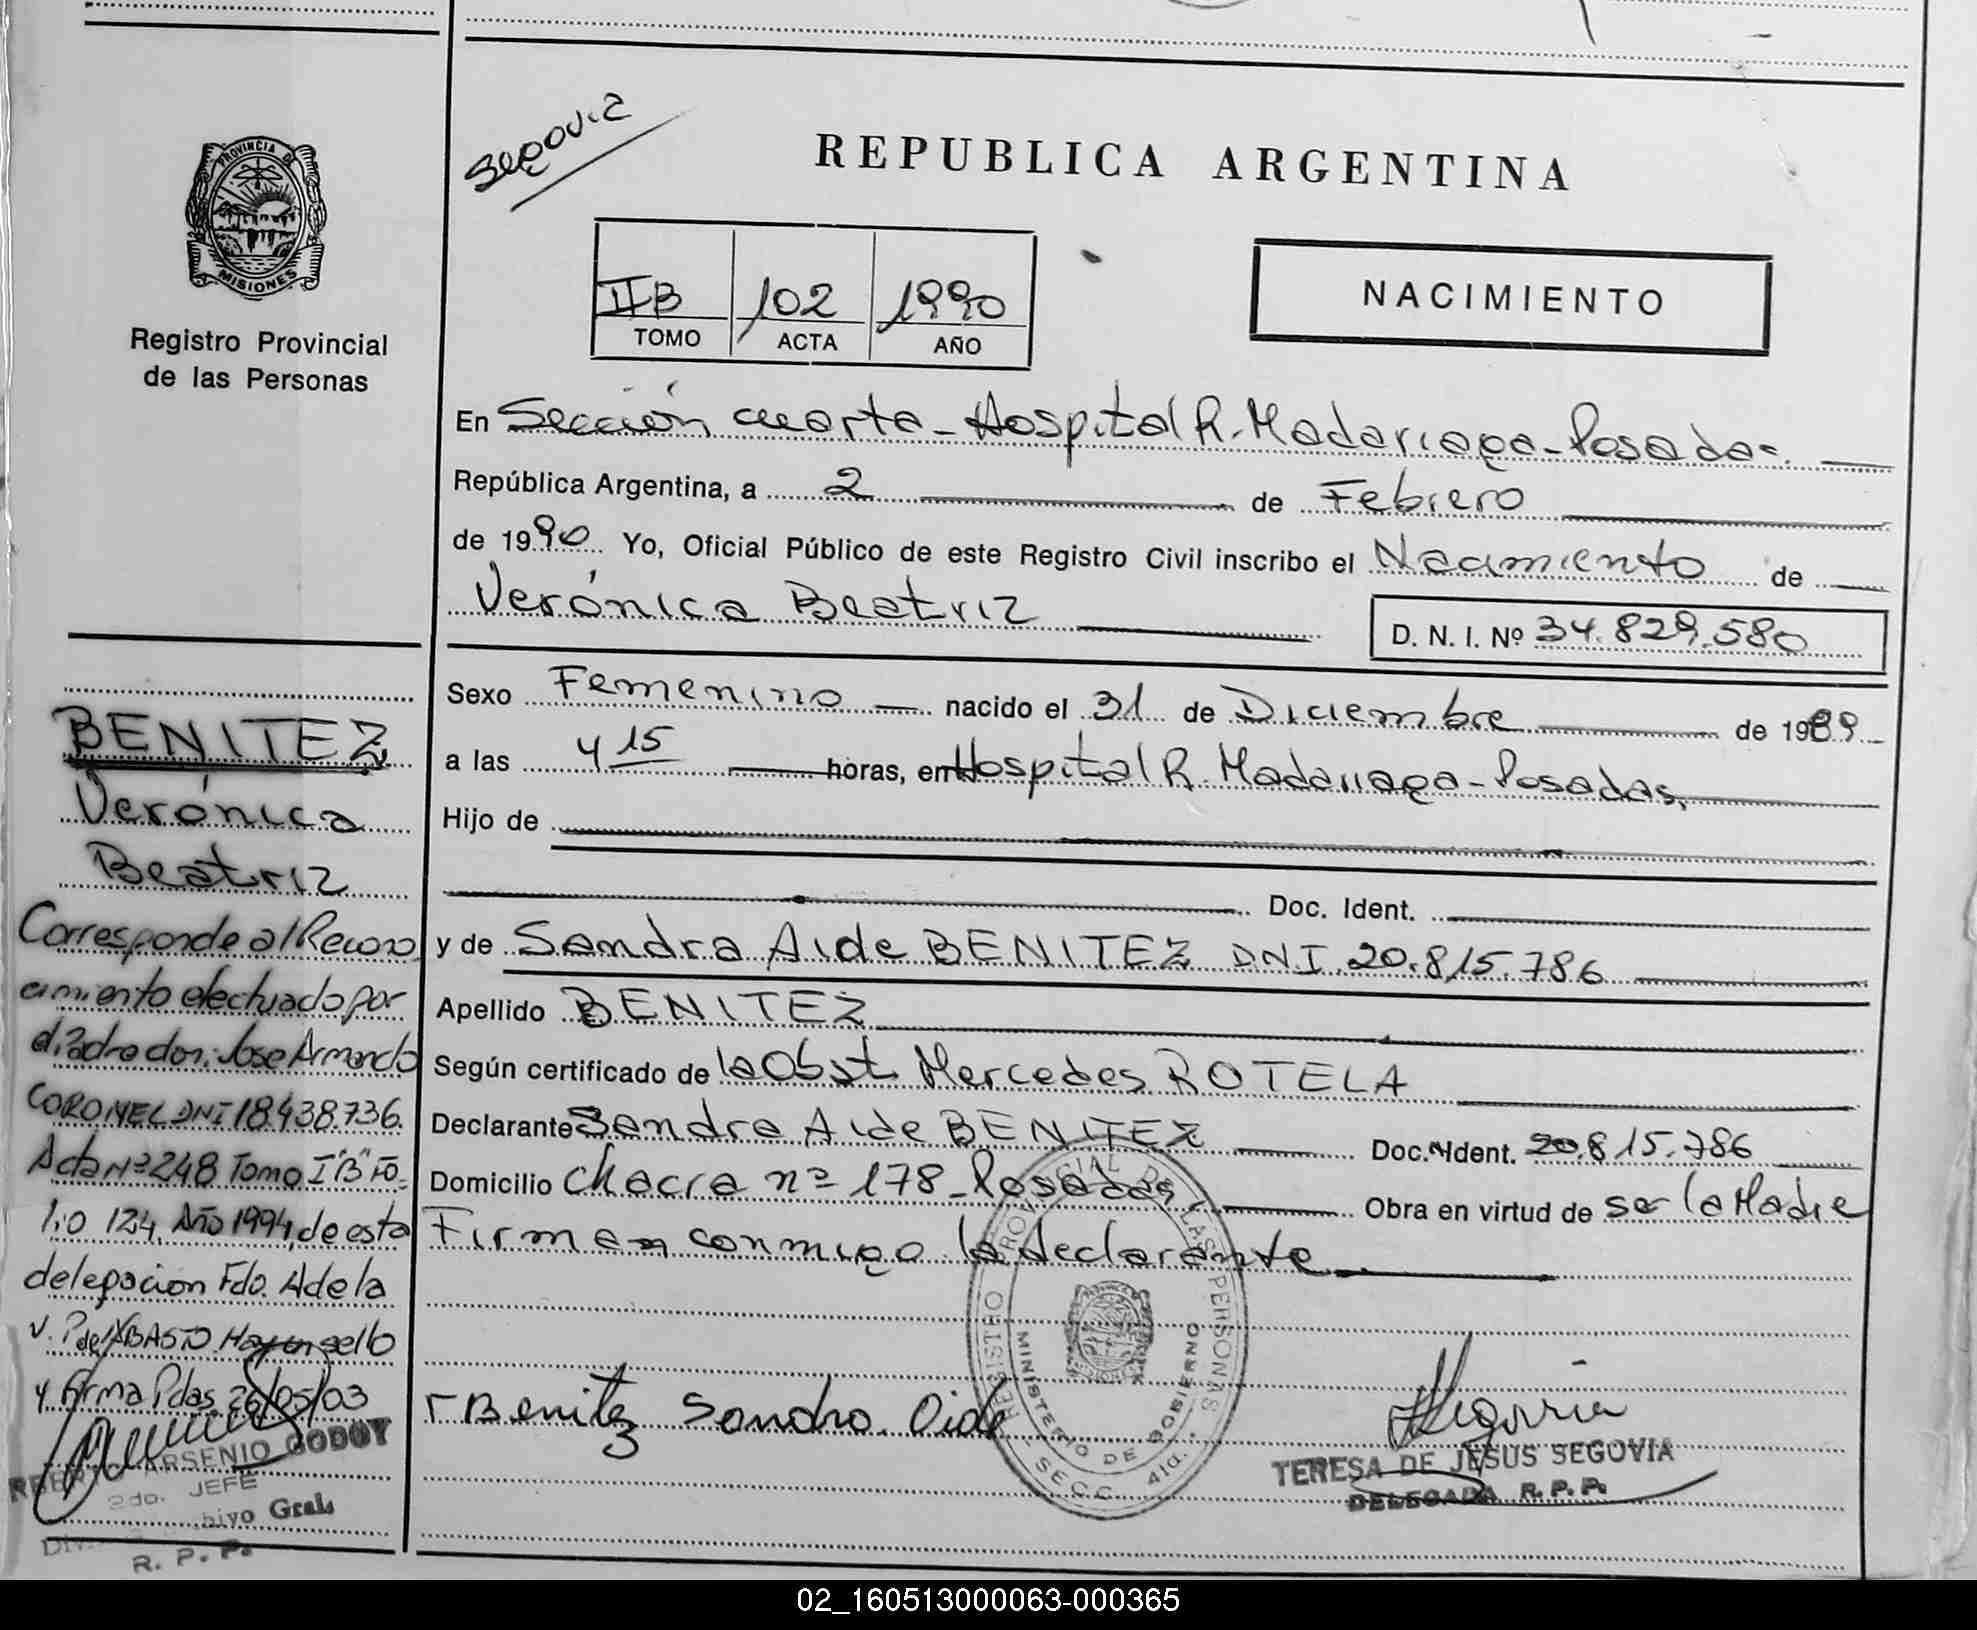 PROVINCIA DE
MISIONES
Registro Provincial
de las Personas
Segovia
REPUBLICA ARGENTINA
IIB 102 1990
TOMO ACTA AÑO
NACIMIENTO
En Sección cuarta - Hospital R. Madariaga - Posadas.
República Argentina, a 2 de Febrero
de 1990 Yo, Oficial Público de este Registro Civil inscribo el Nacimiento de
Verónica Beatriz D. N. I. Nº 34.829.580
Sexo Femenino nacido el 31 de Diciembre de 1989
a las 4 15 horas, en Hospital R. Madariaga - Posadas,
Hijo de
Doc. Ident.
y de Sandra Aide BENITEZ DNI. 20.815.786
Apellido BENITEZ
Según certificado de la Obst Mercedes ROTELA
Declarante Sandra Aide BENITEZ Doc. Ident. 20.815.786
Domicilio Chacra nº 178 - Posadas, Obra en virtud de ser la Madre
Firman conmigo la declarante
Benitez Sandra Oide
REGISTRO PROVINCIAL DE LAS PERSONAS
MINISTERIO DE GOBIERNO
SECC. 4ta.
Segovia
TERESA DE JESUS SEGOVIA
DELEGADA R. P. P.
BENITEZ
Verónica
Beatriz
Corresponde al Recono
cimiento efectuado por
el Padre don: Jose Armando
CORONEL DNI 18.438.736.
Acta Nº 248 Tomo I "B" Fo-
lio 124, Año 1994, de esta
delegacion Fdo. Adela
V. P de ABASTO Hay un sello
y firma Pdas. 26/05/03
ARSENIO GODOY
2do. JEFE
Gral.
R. P. P.
02_160513000063-000365